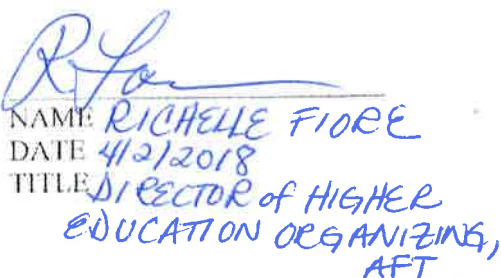 NAME RICHELLE FIORE
DATE 4/2/2018
TITLE DIRECTOR of HIGHER
EDUCATION ORGANIZING,
AFT